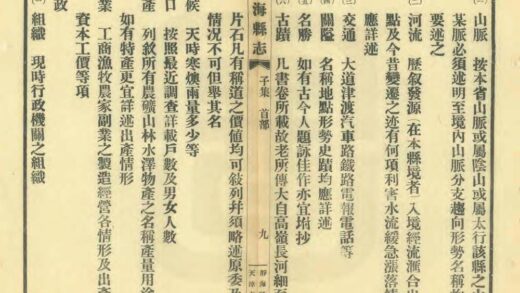 山脈 按本省山脈或屬陰山或屬太行該縣之山
某脈必須述明至境內山脈分支趨向形勢名稱均
要述之
河流 歷叙發源(在本縣境者)入境經流滙合出
點及今昔變遷之迹有何項利害水流緩急漲落情
應詳述
交通 大道津渡汽車路鐵路電報電話等
關隘 名稱地點形勢史蹟均應詳述
名勝 如有古今人題詠佳作亦宜坿抄
(六) 古蹟 凡書卷所載故老所傳大自高嶺長河細至
海縣志 子集 首部 九
片石凡有稱道之價值均可敍列幷須略述原委及
情況不可但舉其名
候 天時寒燠雨量多少等
口 按照最近調查詳載戶數及男女人數
產 列敘所有農礦山林水澤物產之名稱產量用途
如有特產更宜詳述出產情形
業 工商漁牧農家副業之製造經營各情形及出產
資本工價等項
政
組織 現時行政機關之組織